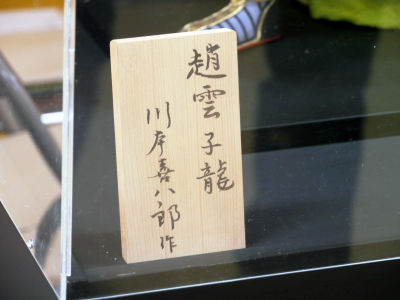 趙雲子龍
川本喜八郎作